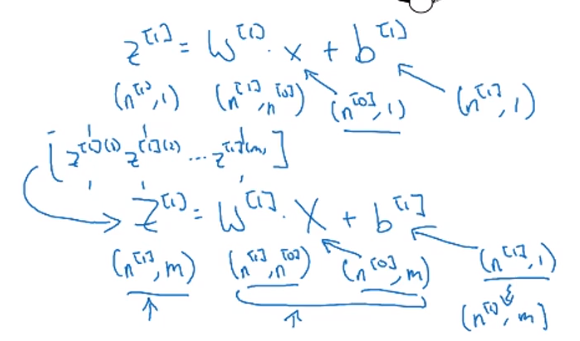 z^[1] = W^[1] · x + b^[1]
(n^[1], 1) (n^[1], n^[0]) (n^[0], 1) (n^[1], 1)
[z^[1](1) z^[1](2) ... z^[1](m)]
Z^[1] = W^[1] · X + b^[1]
(n^[1], m) (n^[1], n^[0]) (n^[0], m) (n^[1], 1)
(n^[1], m)